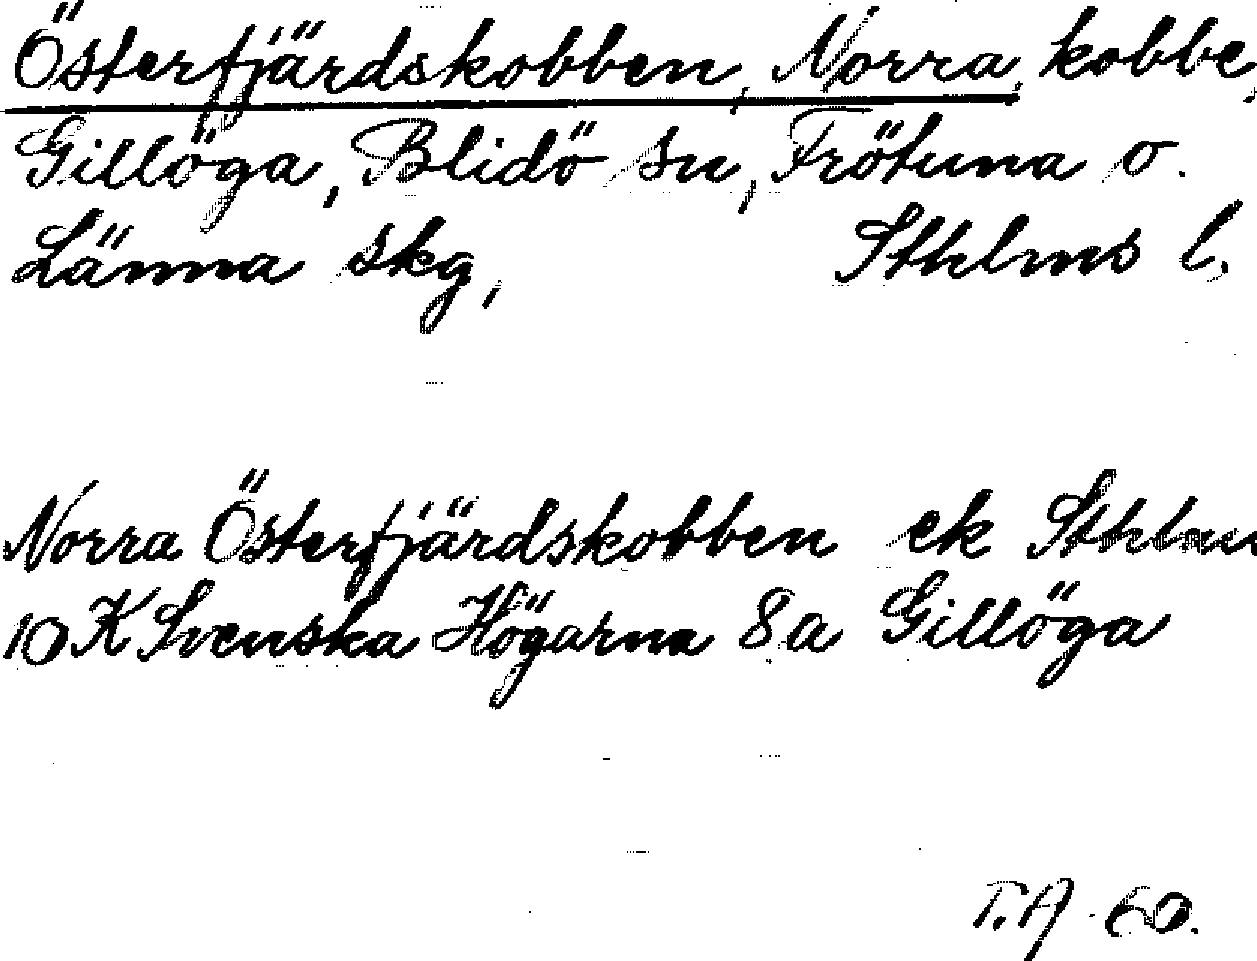 Österfjärdskobben, Norra, kobbe,
Gillöga, Blidö sn, Frötuna o.
Länna skg, Sthlms l.
Norra Österfjärdskobben ek Sthlms
10 K Svenska Högarna 8a Gillöga
T.A. 60.